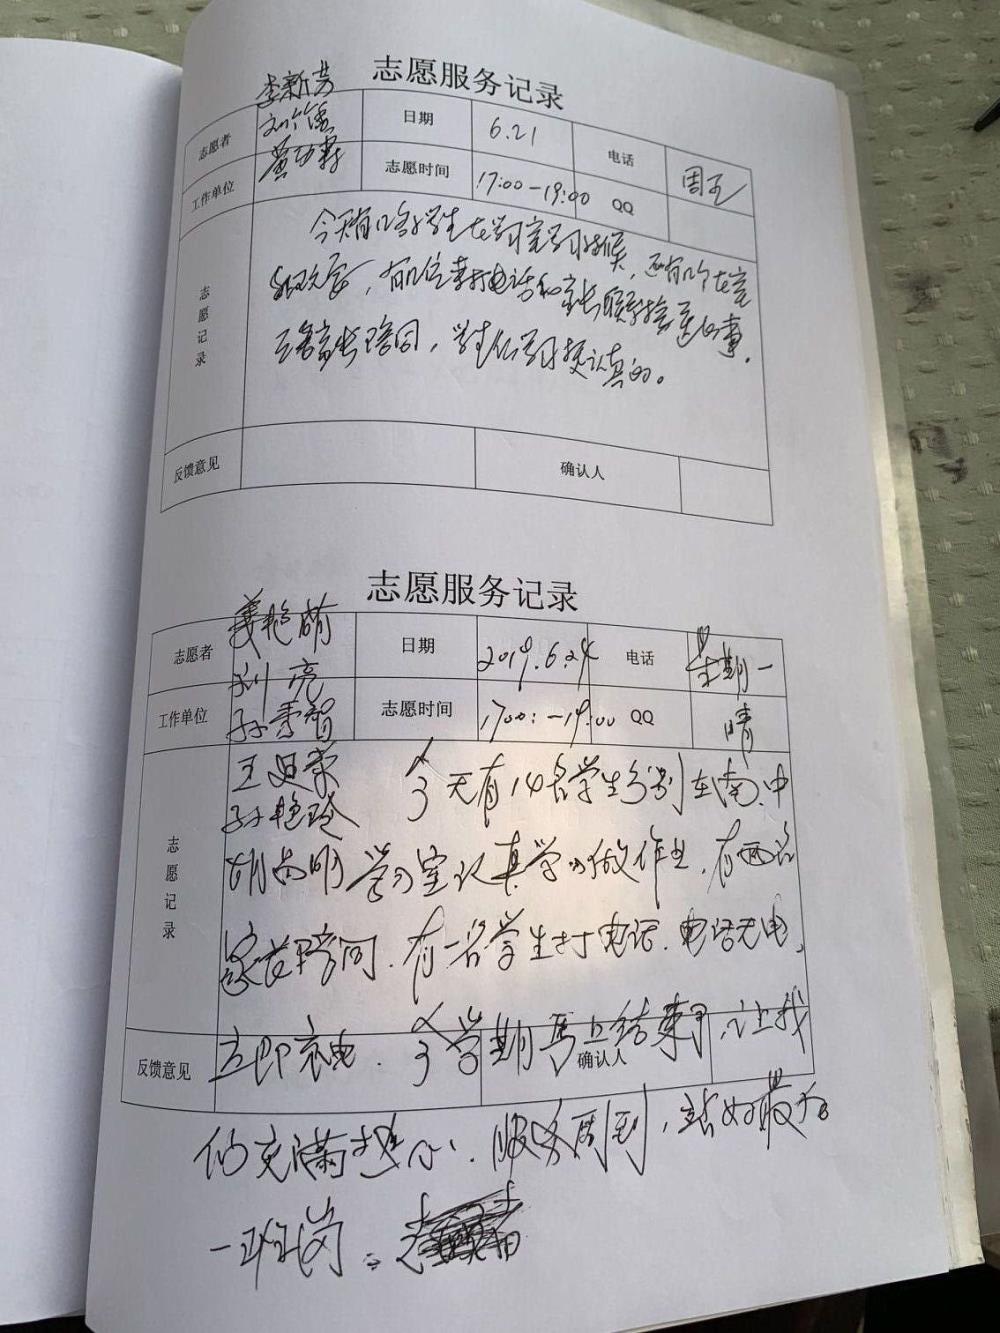 志愿服务记录
李新芳
志愿者 刘 日期 6.21 电话 周五
黄
工作单位 志愿时间 17:00-19:00 QQ
志愿记录
今天有几名学生在学习室学习时候,还有几个在室
有几位来打电话和家长联系接送的事.
三名家长陪同,学生们学习挺认真的。
反馈意见 确认人
志愿服务记录
志愿者 姜艳萌 日期 2019.6.24 电话 星期一
刘亮
工作单位 孙秀智 志愿时间 1700:-19:00 QQ 晴
志愿记录
王迎荣 今天有14名学生分别在南、中
孙艳玲
胡尚明 学习室认真学习做作业,有两名
家长陪同.有一名学生打电话.电话无电,
反馈意见 立即充电.今学期马上结束了,让我 确认人
们充满 心.服务周到,站好最后
一班岗。